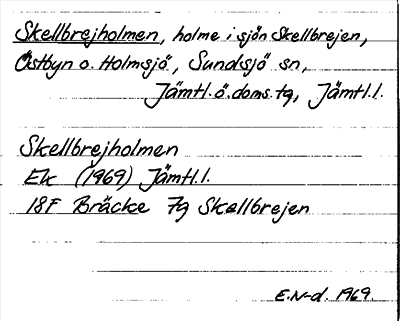 Skellbrejholmen, holme i sjön Skellbrejen,
Östbyn o. Holmsjö, Sundsjö sn,
Jämtl.ö.doms.tg, Jämtl.l.
Skellbrejholmen
Ek (1969) Jämtl.l.
18F Bräcke 7g Skellbrejen
E.N-d. 1969.